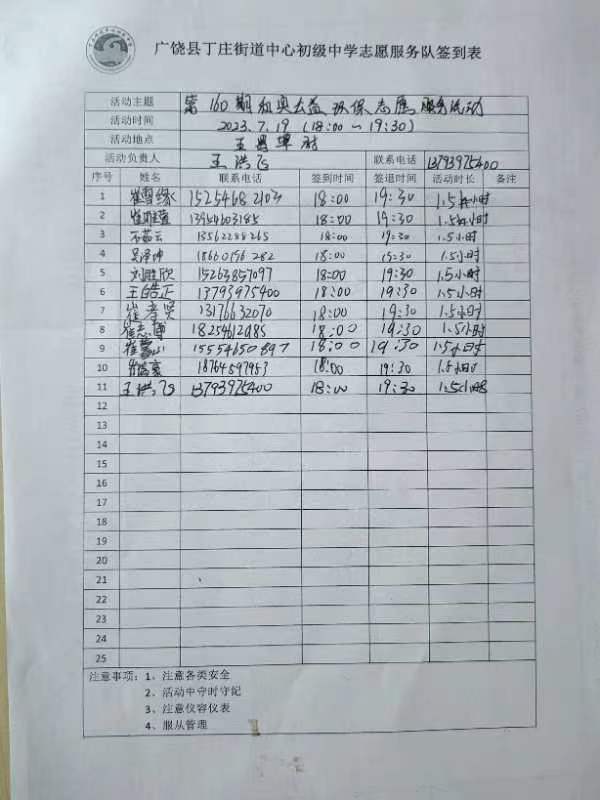 广饶县丁庄街道中心初级中学志愿服务队签到表
活动主题 第160期和奥公益环保志愿服务活动
活动时间 2023.7.19(18:00~19:30)
活动地点 王署埠村
活动负责人 王洪飞 联系电话 13793975400
序号 姓名 联系电话 签到时间 签退时间 活动时长 备注
1 崔雪缘 15254682103 18:00 19:30 1.5小时
2 崔 13954603185 18:00 19:30 1.5小时
3 云 13562288265 18:00 19:30 1.5小时
4 吴泽坤 18660156282 18:00 19:30 1.5小时
5 刘胜欣 15263857097 18:00 19:30 1.5小时
6 王皓正 13793975400 18:00 19:30 1.5小时
7 崔孝贤 13176632070 18:00 19:30 1.5小时
8 崔志博 18254612985 18:00 19:30 1.5小时
9 崔 15554650897 18:00 19:30 1.5小时
10 18764597953 18:00 19:30 1.5小时
11 王洪飞 13793975400 18:00 19:30 1.5小时
12
13
14
15
16
17
18
19
20
21
22
23
24
25
注意事项:1、注意各类安全
2、活动中守时守纪
3、注意仪容仪表
4、服从管理